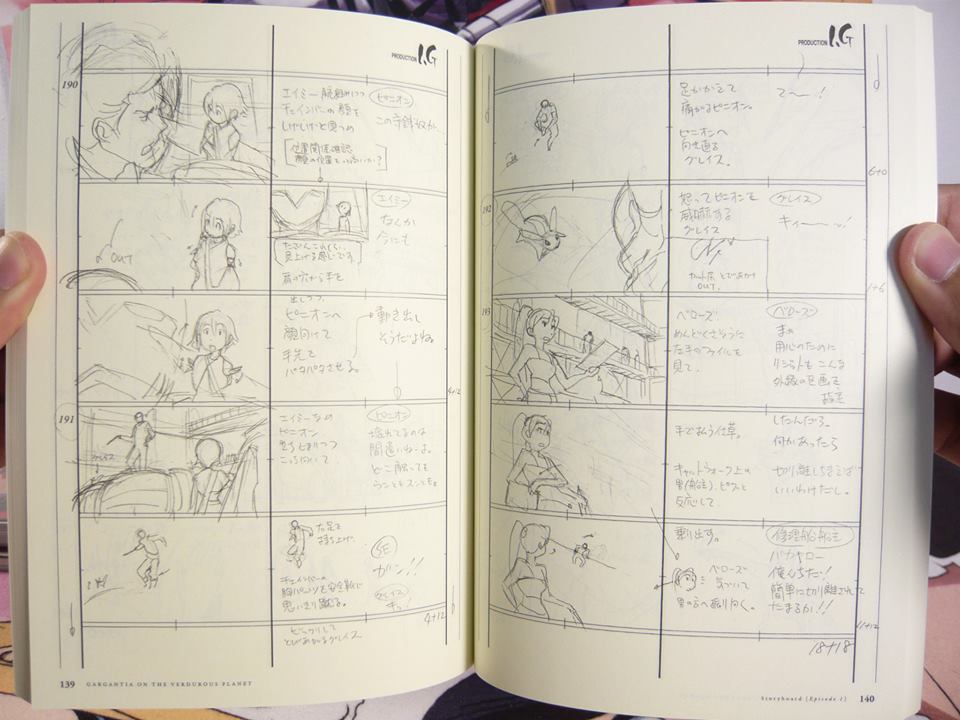 PRODUCTION I.G
190
エイミー 腕組みしつつ
チェインバーの顔を
しげしげと見つめ
ピニオン
この字幕
位置関係確認
エイミー
なんか
今にも
OUT
見上げる感じです
肩
出しつつ
ピニオンへ
顔向けて
手先を
パタパタさせる。
動き出し
そうだよね。
4+12
191
エイミーなめ
ピニオン
立ち止まりつつ
こっち向いて
ピニオン
壊れてるのは
間違いねーよ。
どこ触っても
ウンともスンとも。
右足を
持ち上げ、
チェインバーの
胸
思いきり蹴る。
SE
ガン!!
グレイス
キュ!
4+12
ビックリして
とびあがるグレイス
139 GARGANTIA ON THE VERDUROUS PLANET
PRODUCTION I.G
足かかえて
痛がるピニオン。
ピニオンへ
向き直る
グレイス。
て〜!
6+0
192
怒ってピニオンを
威嚇する
グレイス
グレイス
キィー〜!
OUT.
1+6
193
ベローズ
めんどくさそうに
左手のファイルを
見て。
ベローズ
まぁ
用心のために
こんな
外縁の区画を
指定
手で払う仕草。
したんだろ。
何かあったら
キャットウォーク上の
男(船主)、ピクッと
反応して
切り離しちまえば
いいわけだし。
乗り出す。
ベローズ
気づいて
男の方へ振り向く。
修理船船主
バカヤロー
俺んちだ!
簡単に切り離されて
たまるか!!
11+12
18+18
Storyboard (Episode 1) 140